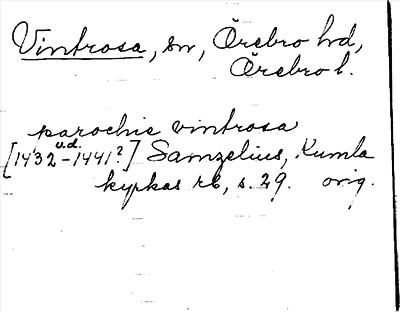 Vintrosa, sn, Örebro hd,
Örebro l.
parochie vintrosa
u.d.
[1432 - 1441?] Samzelius, Kumla
kyrkas rb, s. 29. orig.